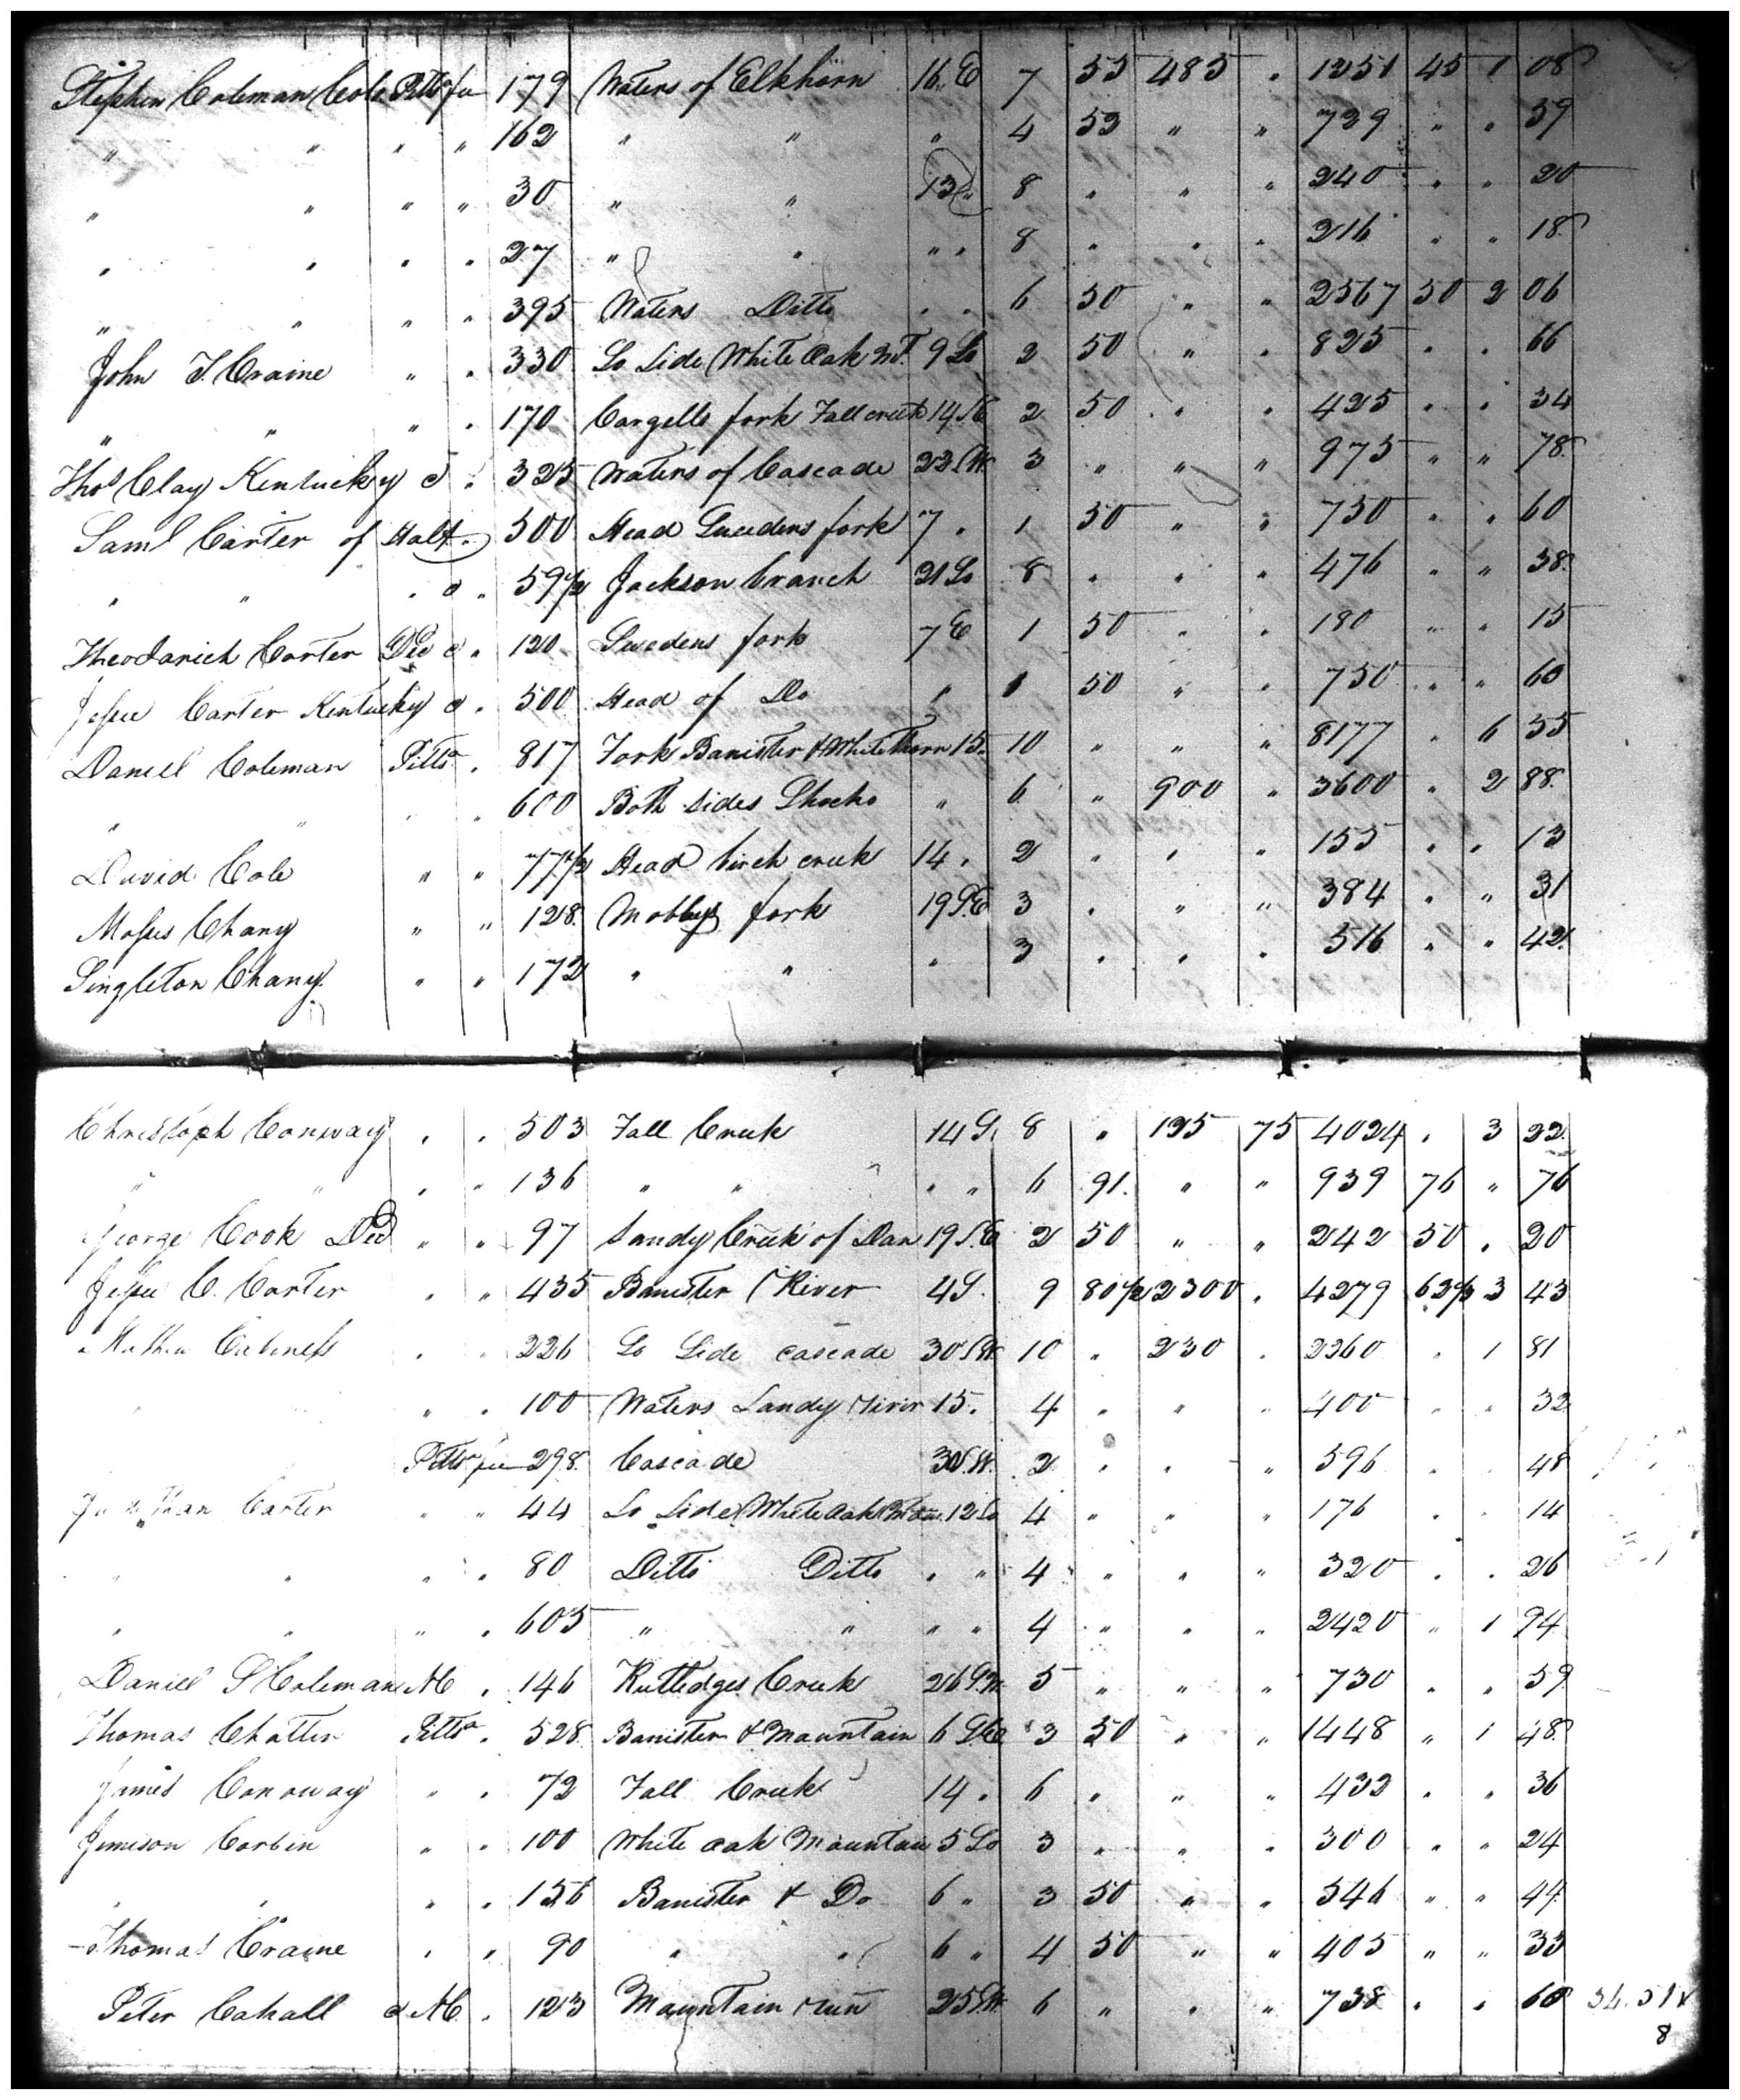 Stephen Coleman Colo Pittsa fee 179 Waters of Elkhorn 16 E 7 55 485 " 1351 45 1 08
" " " " 162 " " " 4 53 " " 729 " " 59
" " " " 30 " " 13 " 8 " " " 240 " " 20
" " " " 27 " " " " 8 " " " 216 " " 18
" " " " 395 Waters Ditto " " 6 50 " " 2567 50 2 06
John T. Craine " " 330 So Side White Oak Mt. 9 So 2 50 " " 825 " " 66
" " " " 170 Cargells fork Fall creek 14 N 2 50 " " 425 " " 34
Thos Clay Kentucky d " 325 Waters of Cascade 22 SW 3 " " " 975 " " 78
Saml Carter of Halt. 500 Head Sweedens fork 7 " 1 50 " " 750 " " 60
" " " d " 59 1/2 Jackson branch 21 So 8 " " " 476 " " 38
Theodarick Carter Ded d " 120 Swedens fork 7 E 1 50 " " 180 " " 15
Jesse Carter Kentucky d " 500 Head of Do " 1 50 " " 750 " " 60
Daniel Coleman Pittsa " 817 Fork Banister & White Thorn 15 10 " " " 8177 " 6 55
" " " " 600 Both sides Shocko " 6 " 900 " 3600 " 2 88
David Cole " " 77 1/2 Head birch creek 14 " 2 " " " 155 " " 13
Moses Chany " " 128 Mobleys fork 19 S.E 3 " " " 384 " " 31
Singleton Chany " " 172 " " " 3 " " " 516 " " 42
Christoph Conway " " 503 Fall Creek 14 S. 8 " 125 75 4024 " 3 22
" " " " 136 " " " " 6 91 " " 939 76 " 76
George Cook Ded " " 97 Sandy Creek of Dan 19 S.E 2 50 " " 242 50 " 20
Jesse C. Carter " " 435 Banister River 4 S. 9 80 1/2 2300 " 4279 62 1/2 3 43
Mathew Cabiness " " 226 So Side cascade 30 SW 10 " 230 " 2260 " 1 81
" " 100 Waters Sandy river 15 " 4 " " " 400 " " 32
Pittsa fee 298 Cascade 30 SW. 2 " " " 596 " " 48
Carter " " 44 So Side White Oak Moun 12 So 4 " " " 176 " " 14
" " " " 80 Ditto Ditto " " 4 " " " 320 " " 26
" " " " 605 " " " " 4 " " " 2420 " 1 94
Daniel S Coleman " 146 Rutledges Creek 26 S.W 5 " " " 730 " " 59
Thomas Chatten Pittsa " 528 Banister & Mountain 6 3 50 " " 1448 " 1 48
James Conoway " " 72 Fall Creek 14 " 6 " " " 432 " " 36
Jimison Corbin " " 100 White oak Mountain 5 So 3 " " " 300 " " 24
" " " " 156 Banister & Do 6 " 3 50 " " 546 " " 44
Thomas Craine " " 90 " " 6 " 4 50 " " 405 " " 33
Peter Cahall d " 123 Mountain run 25 SW 6 " " " 738 " " 60 34.51
8